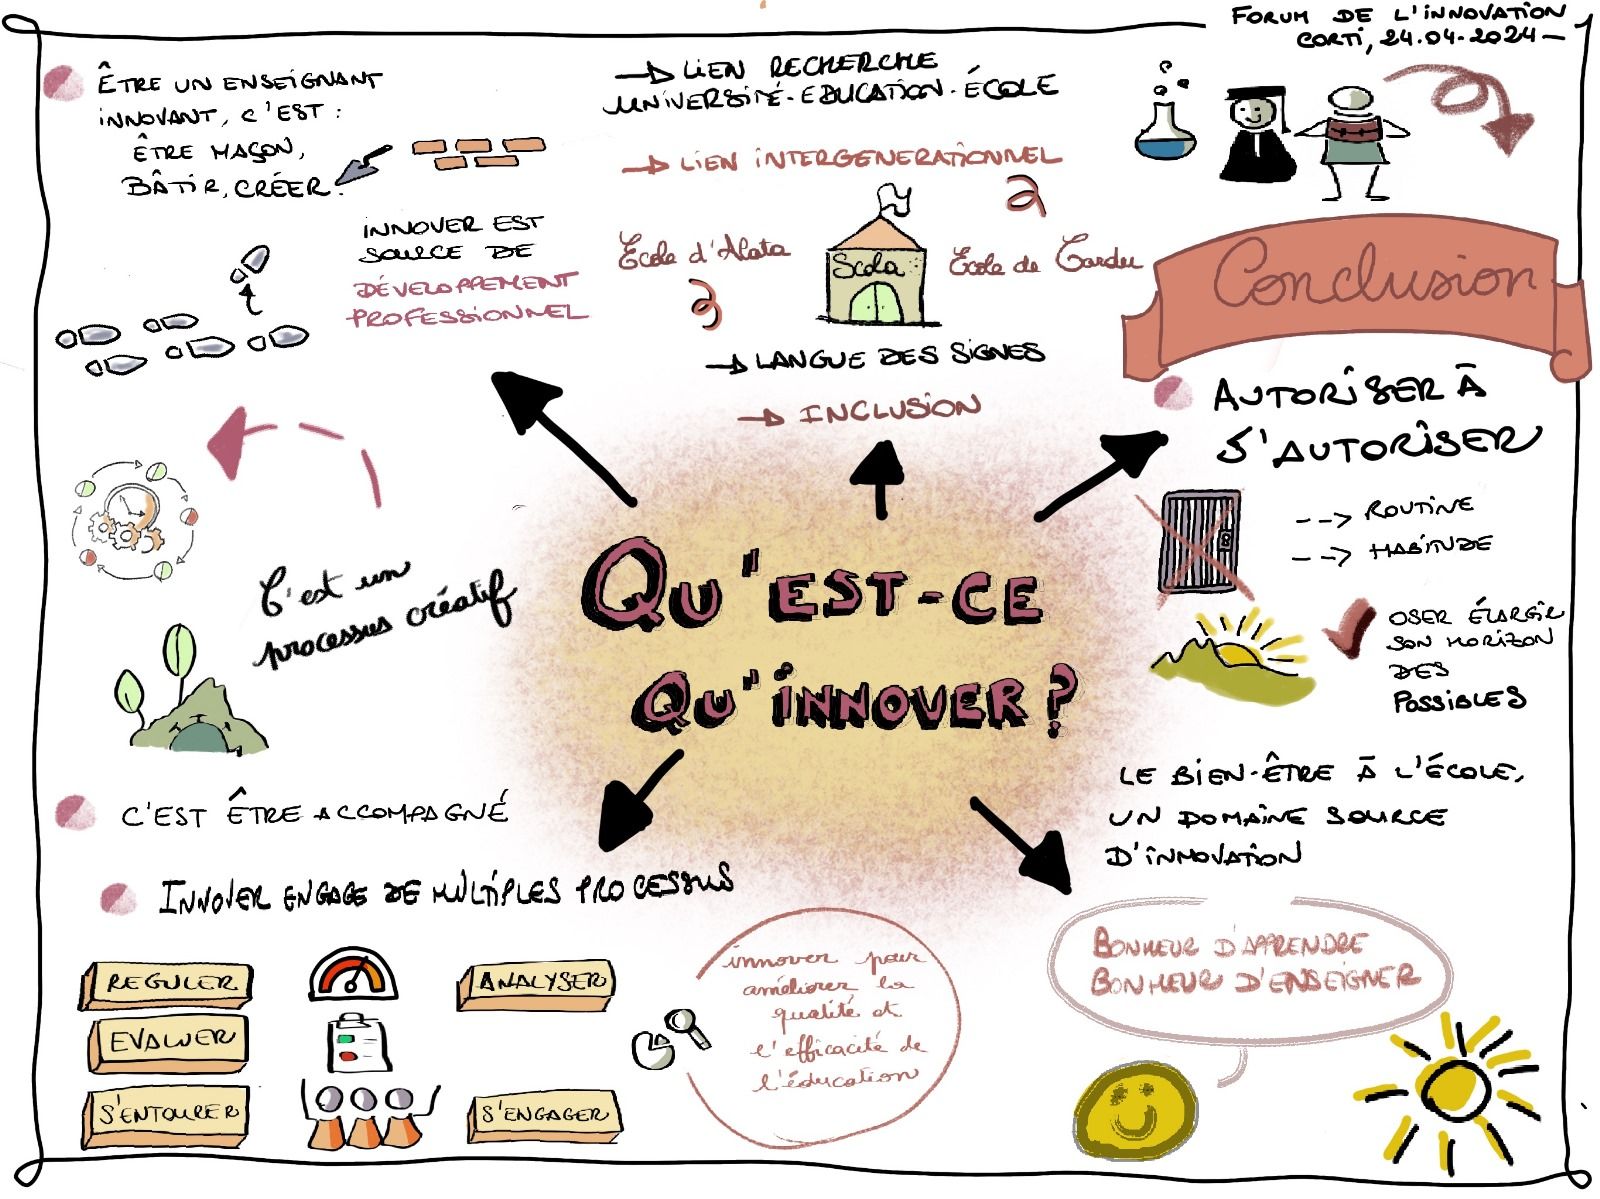 FORUM DE L'INNOVATION
CORTI, 24.04.2024
ÊTRE UN ENSEIGNANT
INNOVANT, C'EST :
ÊTRE MAÇON,
BÂTIR, CRÉER.
INNOVER EST
SOURCE DE
DÉVELOPPEMENT
PROFESSIONNEL
→ LIEN RECHERCHE
UNIVERSITÉ-EDUCATION-ÉCOLE
→ LIEN INTERGENERATIONNEL
École d'Alata
Scola
École de Cardu
→ LANGUE DES SIGNES
→ INCLUSION
Conclusion
AUTORISER À
S'AUTORISER
--> ROUTINE
--> HABITUDE
OSER ÉLARGIR
SON HORIZON
DES
POSSIBLES
C'est un
processus créatif
QU'EST-CE
QU'INNOVER ?
C'EST ÊTRE ACCOMPAGNÉ
INNOVER ENGAGE DE MULTIPLES PROCESSUS
REGULER
ANALYSER
EVALUER
S'ENTOURER
S'ENGAGER
innover pour
améliorer la
qualité et
l'efficacité de
l'éducation
LE BIEN-ÊTRE À L'ÉCOLE,
UN DOMAINE SOURCE
D'INNOVATION
BONHEUR D'APPRENDRE
BONHEUR D'ENSEIGNER